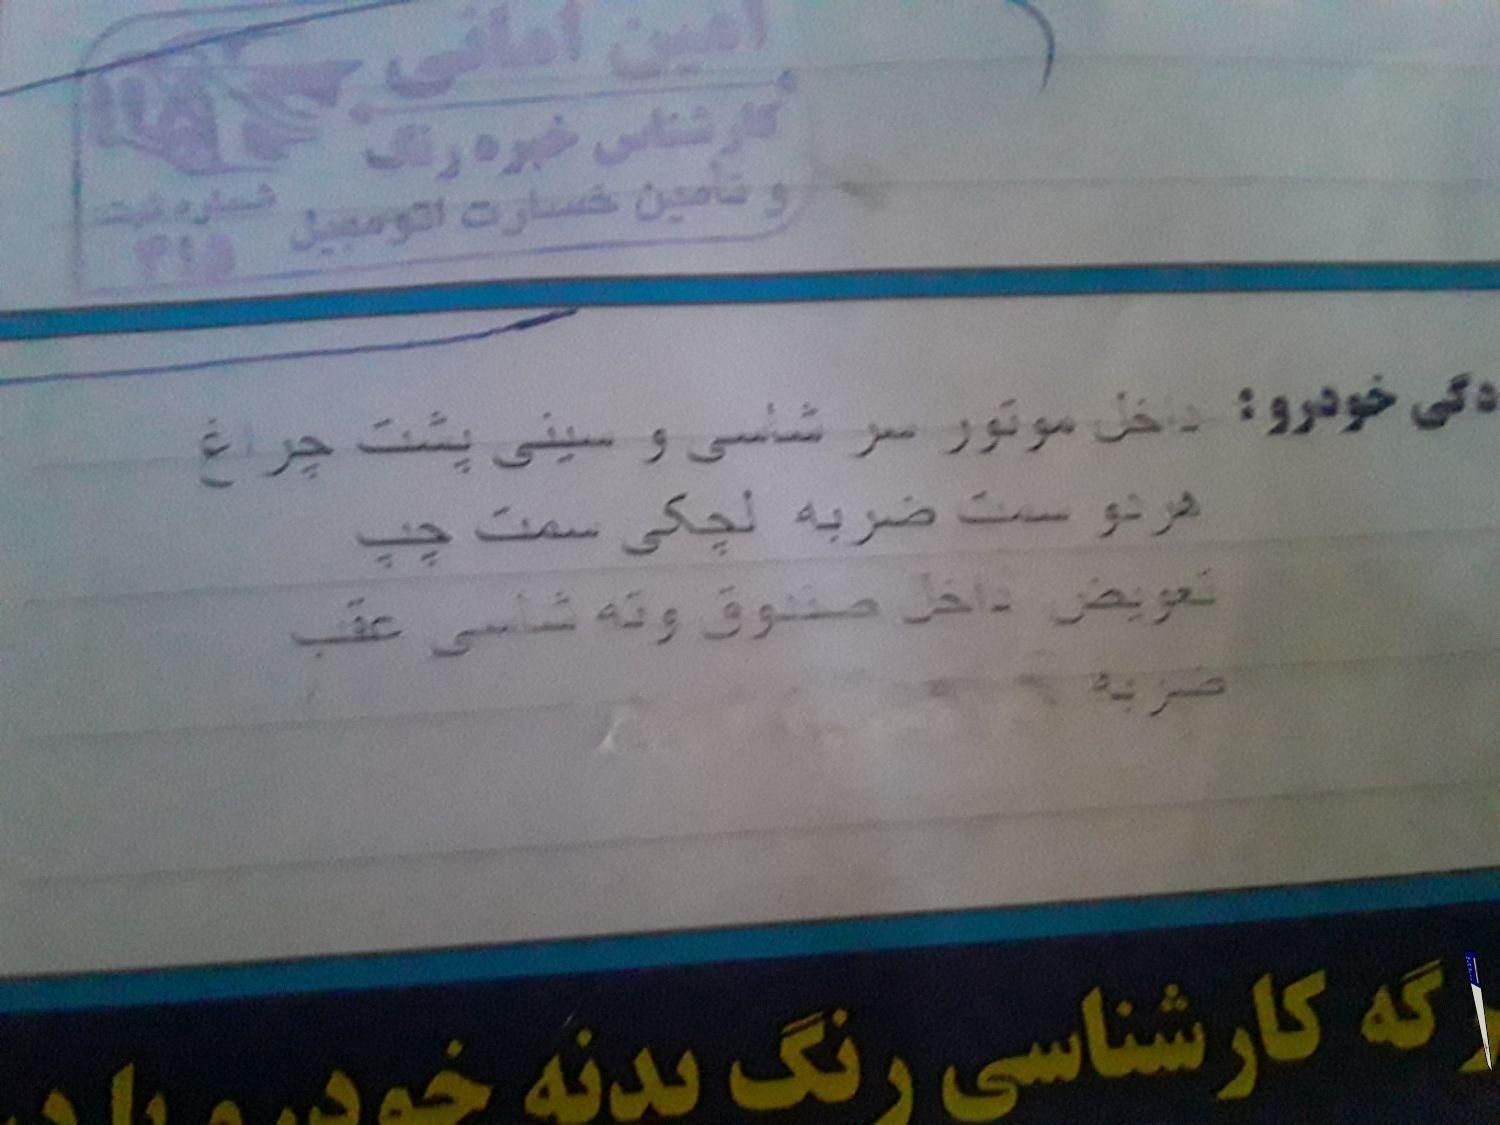 امین امانی
کارشناس خبره رنگ
و تأمین خسارت اتومبیل
شماره ثبت
۳۱۵
دگی خودرو: داخل موتور سر شاسی و سینی پشت چراغ
هردو سمت ضربه لچکی سمت چپ
تعویض داخل صندوق وته شاسی عقب
ضربه
گه کارشناسی رنگ بدنه خودرو با